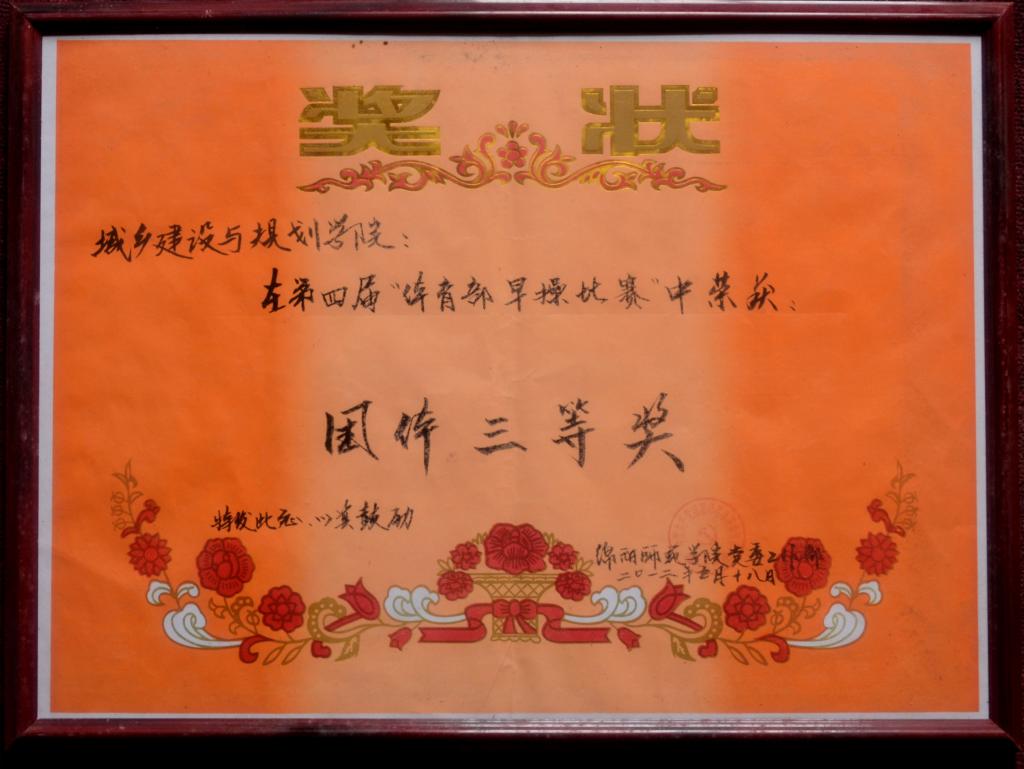 奖状
城乡建设与规划学院：
在第四届“体育部早操比赛”中荣获：
团体三等奖
特发此证、以资鼓励
绵阳师范学院党委工作部
二〇一二年五月十八日